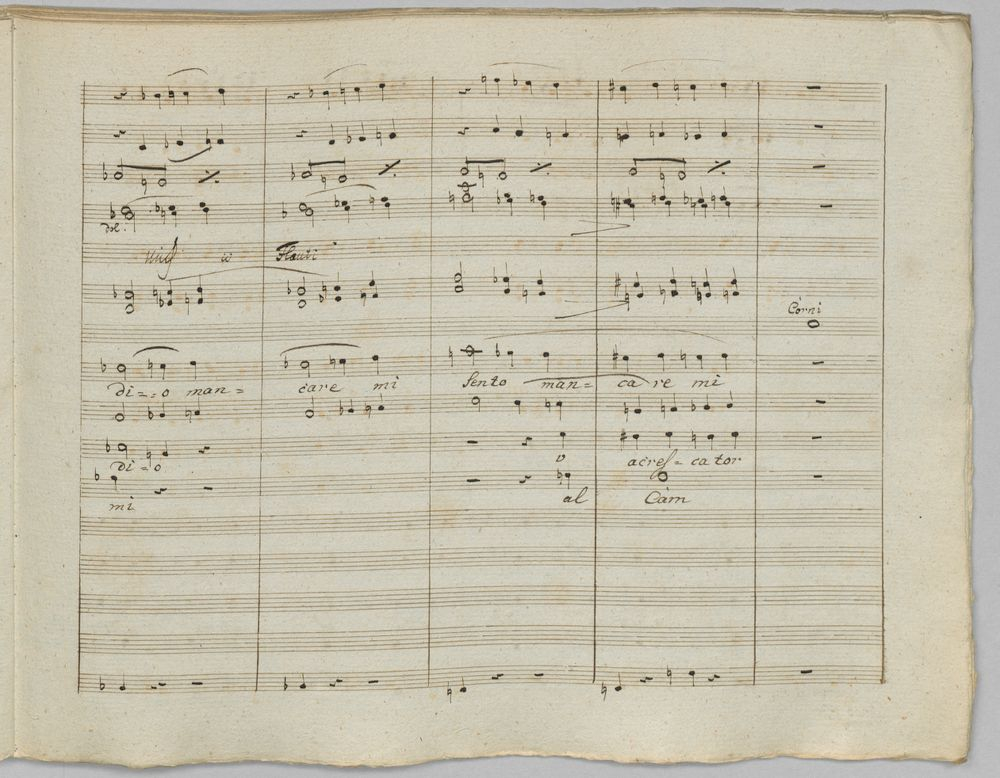 dol.
Flauti
Corni
di=o man= care mi sento man= ca re mi
di=o v acres=cator
mi al Cam